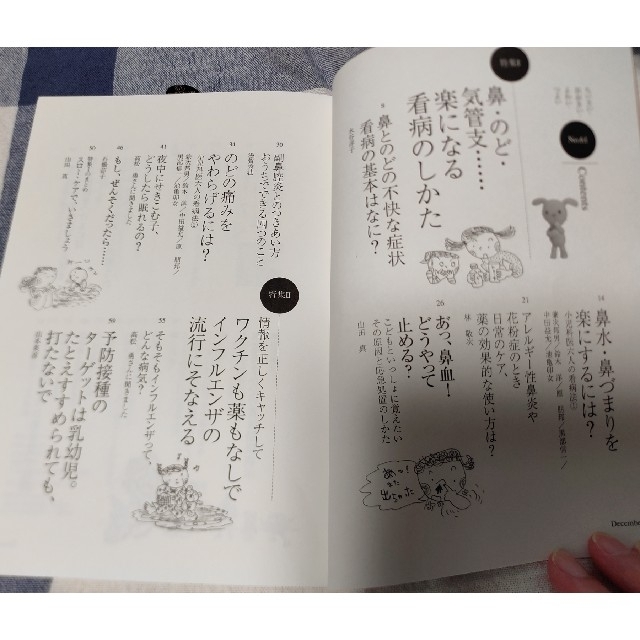 No.61
Contents
特集I
鼻・のど・
気管支……
楽になる
看病のしかた
8
鼻とのどの不快な症状
看病の基本はなに?
14
鼻水・鼻づまりを
楽にするには?
21
アレルギー性鼻炎や
花粉症のとき
日常のケア、
薬の効果的な使い方は?
林 敬次
26
あっ、鼻血!
どうやって
止める?
こどもといっしょに覚えたい
その原因と応急処置のしかた
山田 真
あっ!
また
出ちゃった
30
副鼻腔炎とのつきあい方
おうちでできる四つのこと
34
のどの痛みを
やわらげるには?
41
夜中にせきこむ子、
どうしたら眠れるの?
もし、ぜんそくだったら……
50
スロー・ケアで、いきましょう
山田 真
特集II
情報を正しくキャッチして
ワクチンも薬もなしで
インフルエンザの
流行にそなえる
55
そもそもインフルエンザって、
どんな病気?
予防接種の
ターゲットは乳幼児。
たとえすすめられても、
打たないで